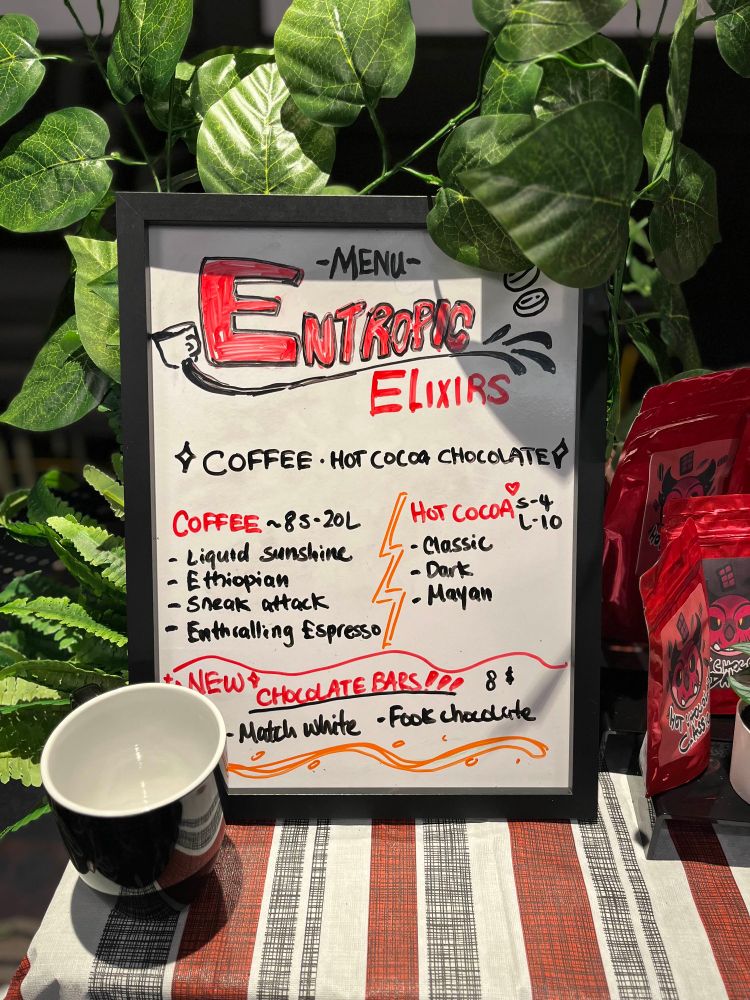 -MENU-
ENTROPIC
ELIXIRS
COFFEE · HOT COCOA CHOCOLATE
COFFEE ~8S-20L
- Liquid sunshine
- Ethiopian
- Sneak attack
- Enthralling Espresso
HOT COCOA S-4
L-10
- Classic
- Dark
- Mayan
NEW
CHOCOLATE BARS!!! 8$
- Match White - Fook chocolate
HOT